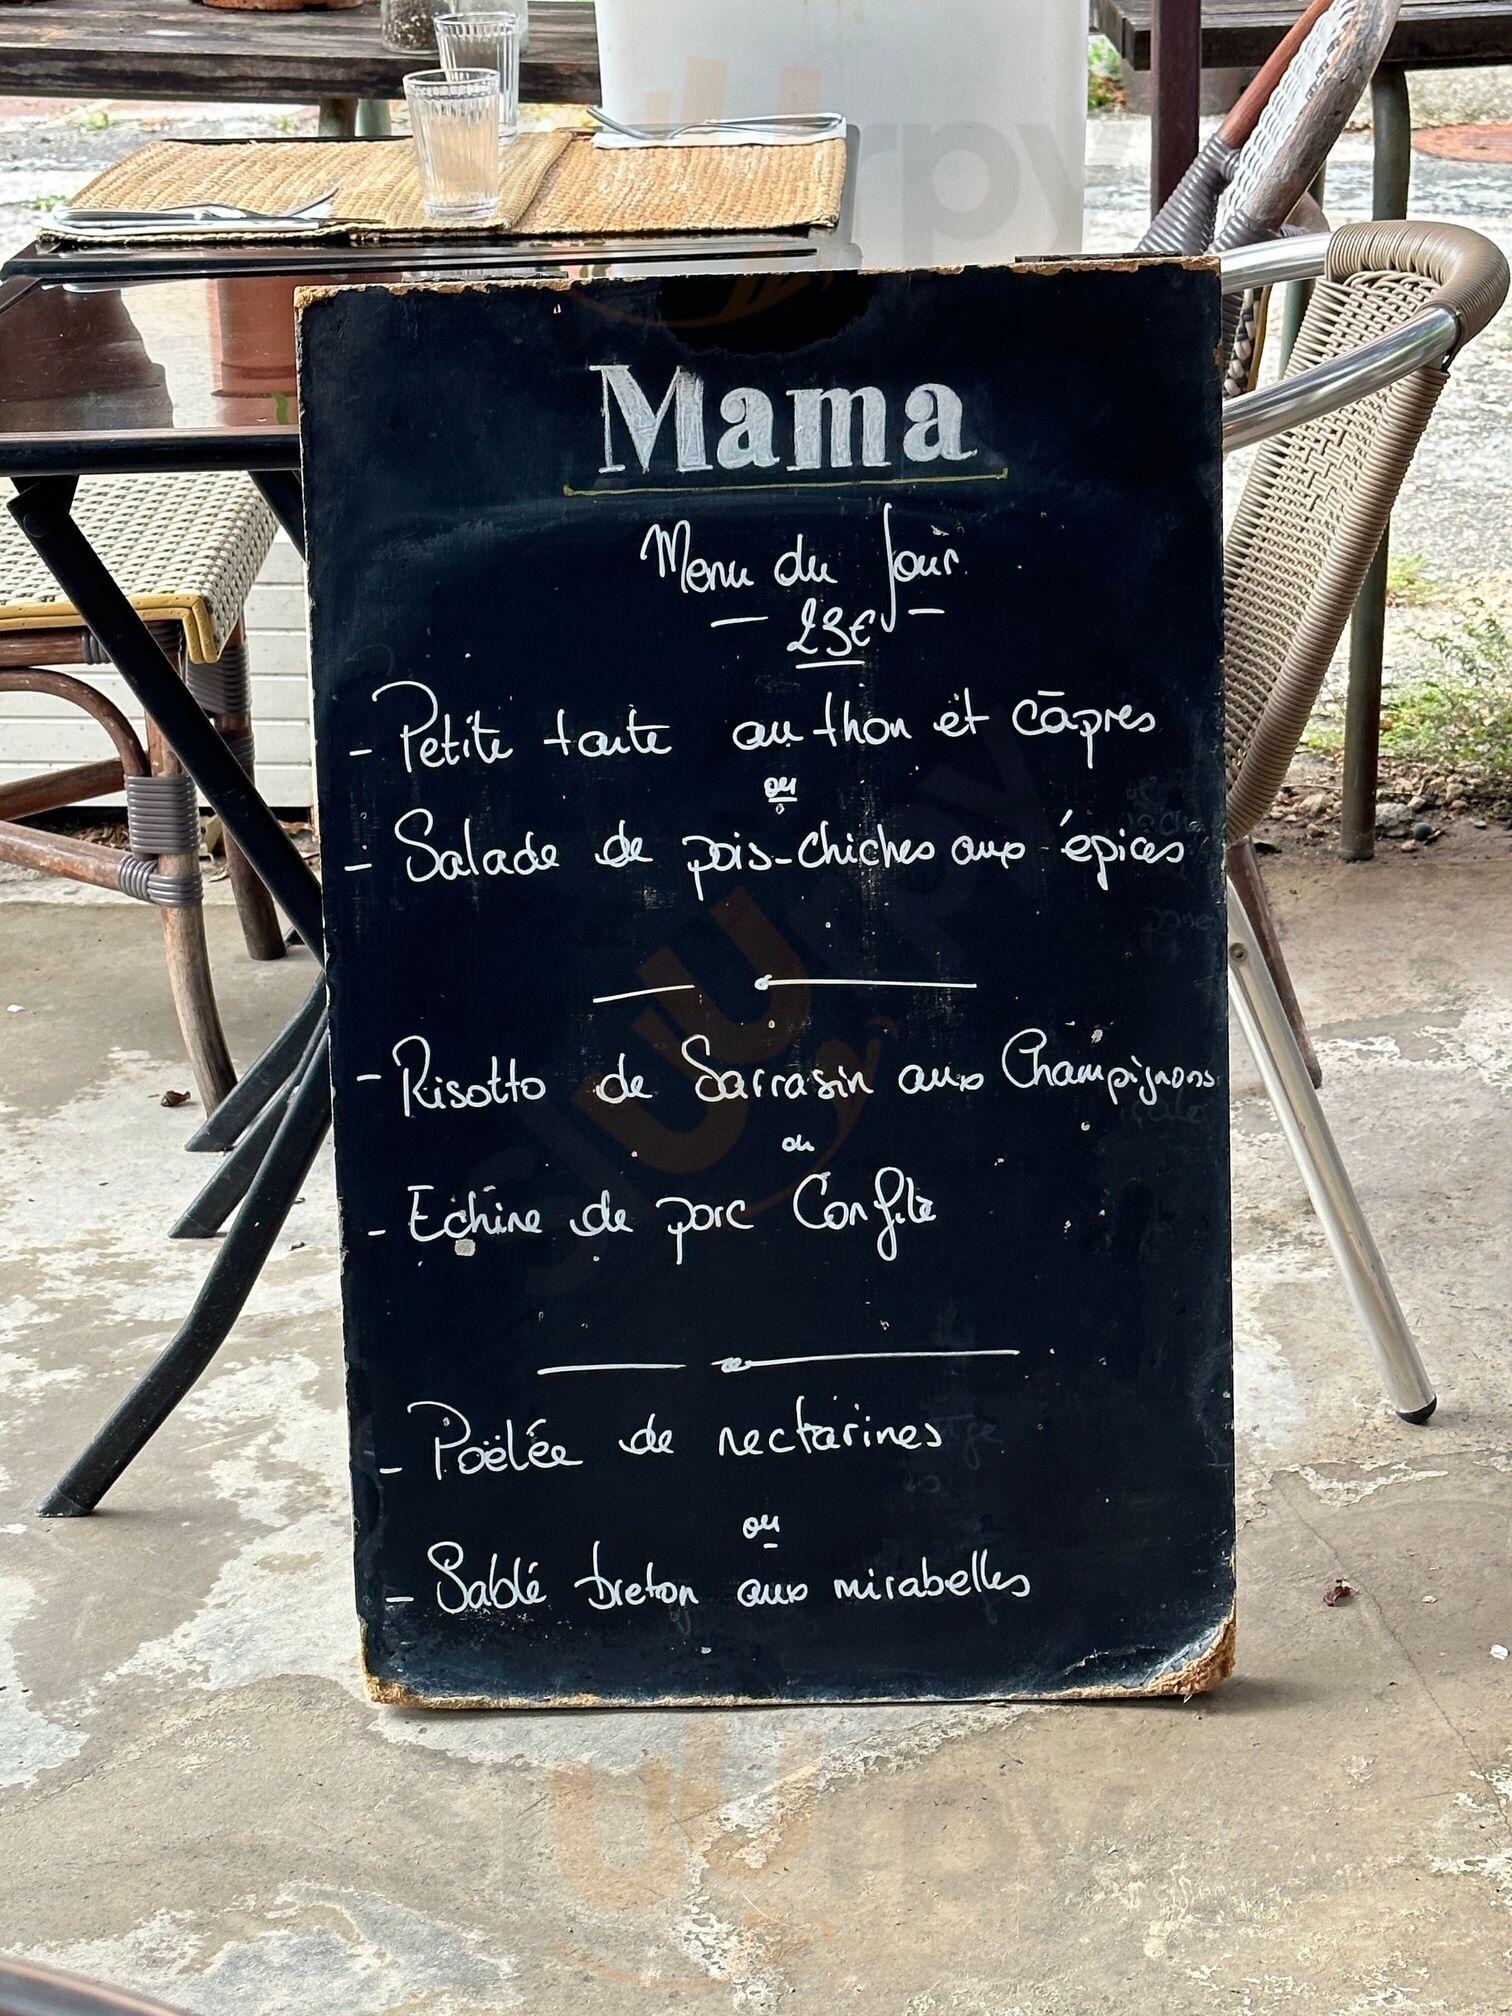 Mama
Menu du Jour
- 23€ -
- Petite tarte au thon et câpres
ou
- Salade de pois-chiches aux épices
- Risotto de Sarrasin aux Champignons
ou
- Echine de porc Confite
- Poëlée de nectarines
ou
- Sablé breton aux mirabelles
sluurpy